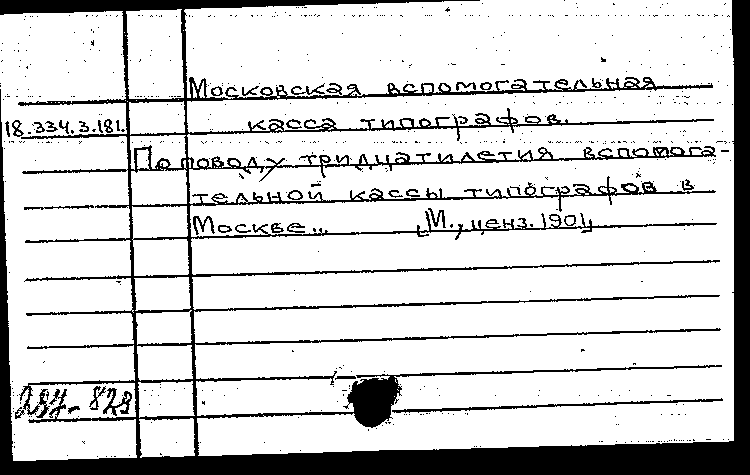 Московская вспомогательная
18.334.3.181. касса типографов.
По поводу тридцатилетия вспомога-
тельной кассы типографов в
Москве... [М., ценз. 1901]
287-828